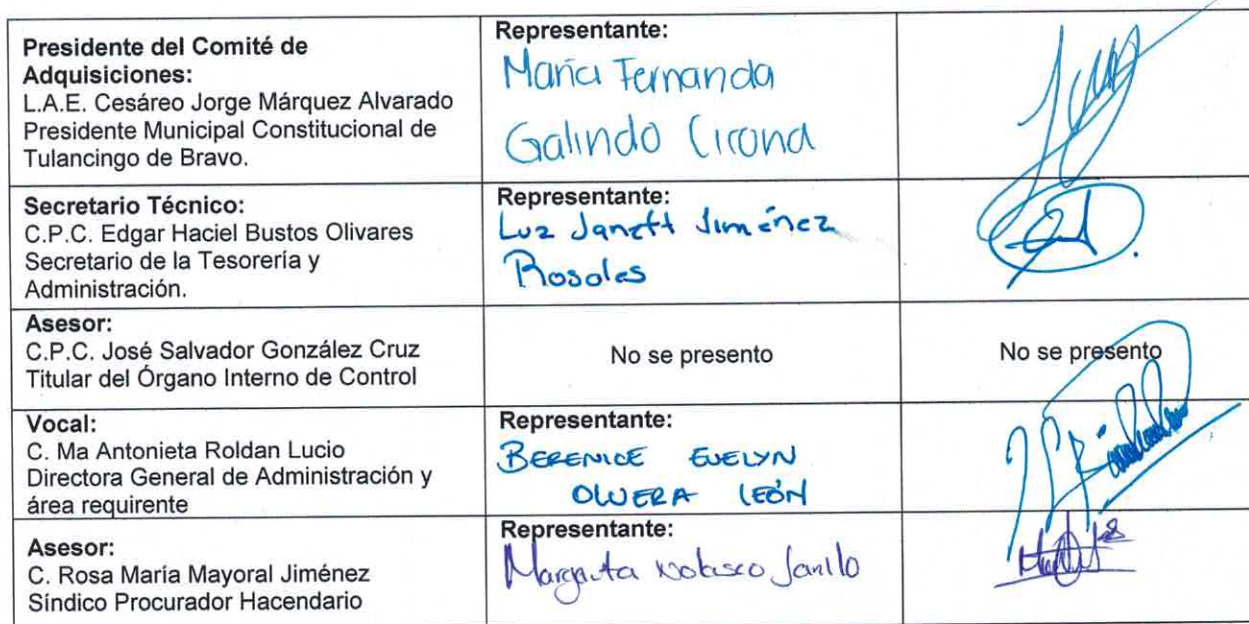 Presidente del Comité de
Adquisiciones:
L.A.E. Cesáreo Jorge Márquez Alvarado
Presidente Municipal Constitucional de
Tulancingo de Bravo.
Representante:
María Fernanda
Galindo
Secretario Técnico:
C.P.C. Edgar Haciel Bustos Olivares
Secretario de la Tesorería y
Administración.
Representante:
Luz Janett Jiménez
Rosales
Asesor:
C.P.C. José Salvador González Cruz
Titular del Órgano Interno de Control
No se presento
No se presento
Vocal:
C. Ma Antonieta Roldan Lucio
Directora General de Administración y
área requirente
Representante:
BERENICE EVELYN
OLVERA LEÓN
Asesor:
C. Rosa María Mayoral Jiménez
Síndico Procurador Hacendario
Representante:
Margarita Nolasco